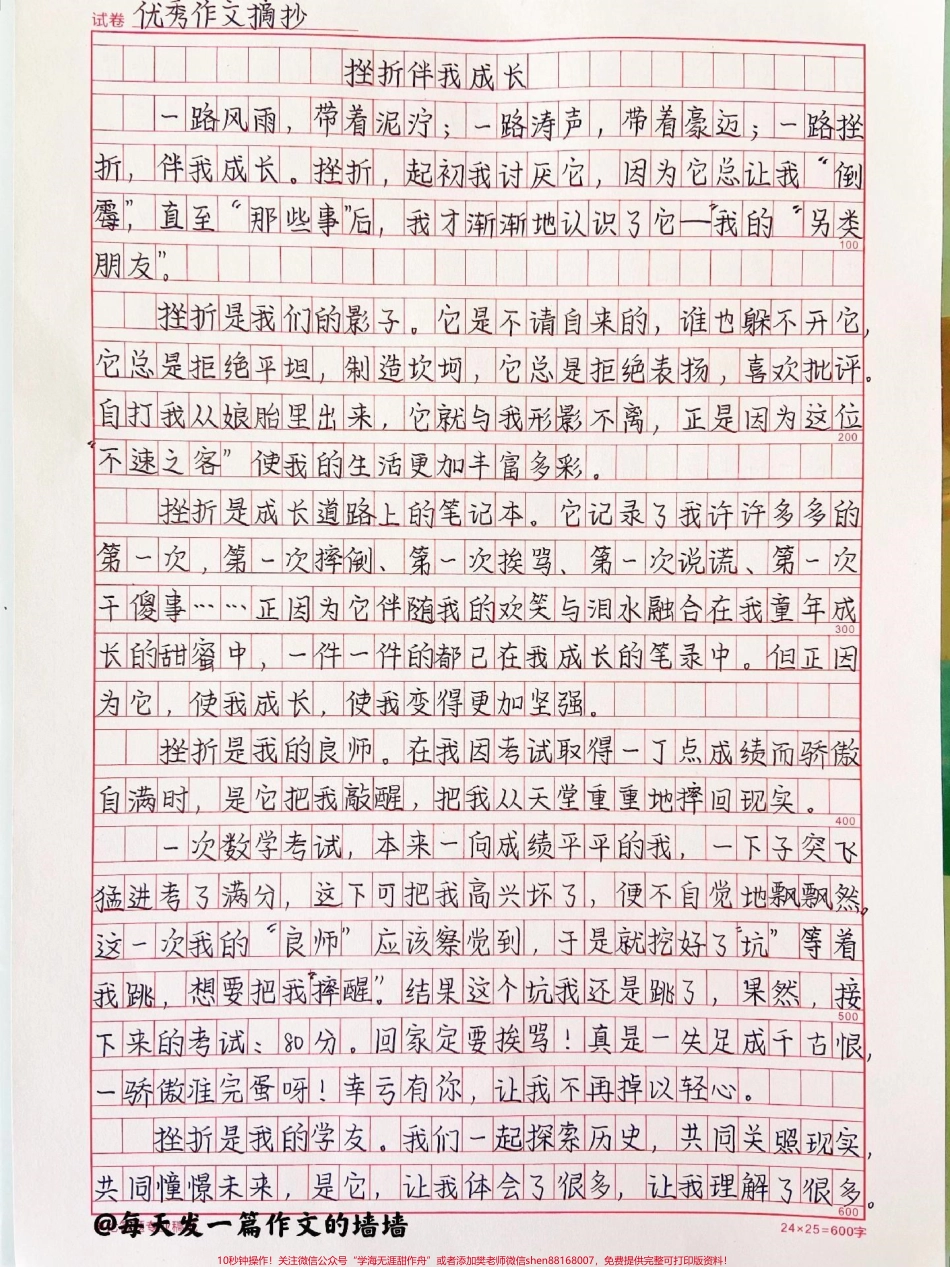 试卷 优秀作文摘抄
挫折伴我成长
一路风雨，带着泥泞；一路涛声，带着豪迈；一路挫
折，伴我成长。挫折，起初我讨厌它，因为它总让我“倒
霉”，直至“那些事”后，我才渐渐地认识了它—“我的“另类
100
朋友”。
挫折是我们的影子。它是不请自来的，谁也躲不开它，
它总是拒绝平坦，制造坎坷，它总是拒绝表扬，喜欢批评。
自打我从娘胎里出来，它就与我形影不离，正是因为这位
200
“不速之客”使我的生活更加丰富多彩。
挫折是成长道路上的笔记本。它记录了我许许多多的
第一次，第一次摔倒、第一次挨骂、第一次说谎、第一次
干傻事……正因为它伴随我的欢笑与泪水融合在我童年成
300
长的甜蜜中，一件一件的都已在我成长的笔录中。但正因
为它，使我成长，使我变得更加坚强。
挫折是我的良师。在我因考试取得一丁点成绩而骄傲
自满时，是它把我敲醒，把我从天堂重重地摔回现实。
400
一次数学考试，本来一向成绩平平的我，一下子突飞
猛进考了满分，这下可把我高兴坏了，便不自觉地飘飘然。
这一次我的“良师”应该察觉到，于是就挖好了“坑”等着
我跳，想要把我“摔醒”。结果这个坑我还是跳了，果然，接
500
下来的考试：80分。回家定要挨骂！真是一失足成千古恨，
一骄傲准完蛋呀！幸亏有你，让我不再掉以轻心。
挫折是我的学友。我们一起探索历史，共同关照现实，
共同憧憬未来，是它，让我体会了很多，让我理解了很多。
600
@每天发一篇作文的墙墙
24×25=600字
10秒钟操作！关注微信公众号“学海无涯甜作舟”或者添加樊老师微信shen88168007，免费提供完整可打印版资料！